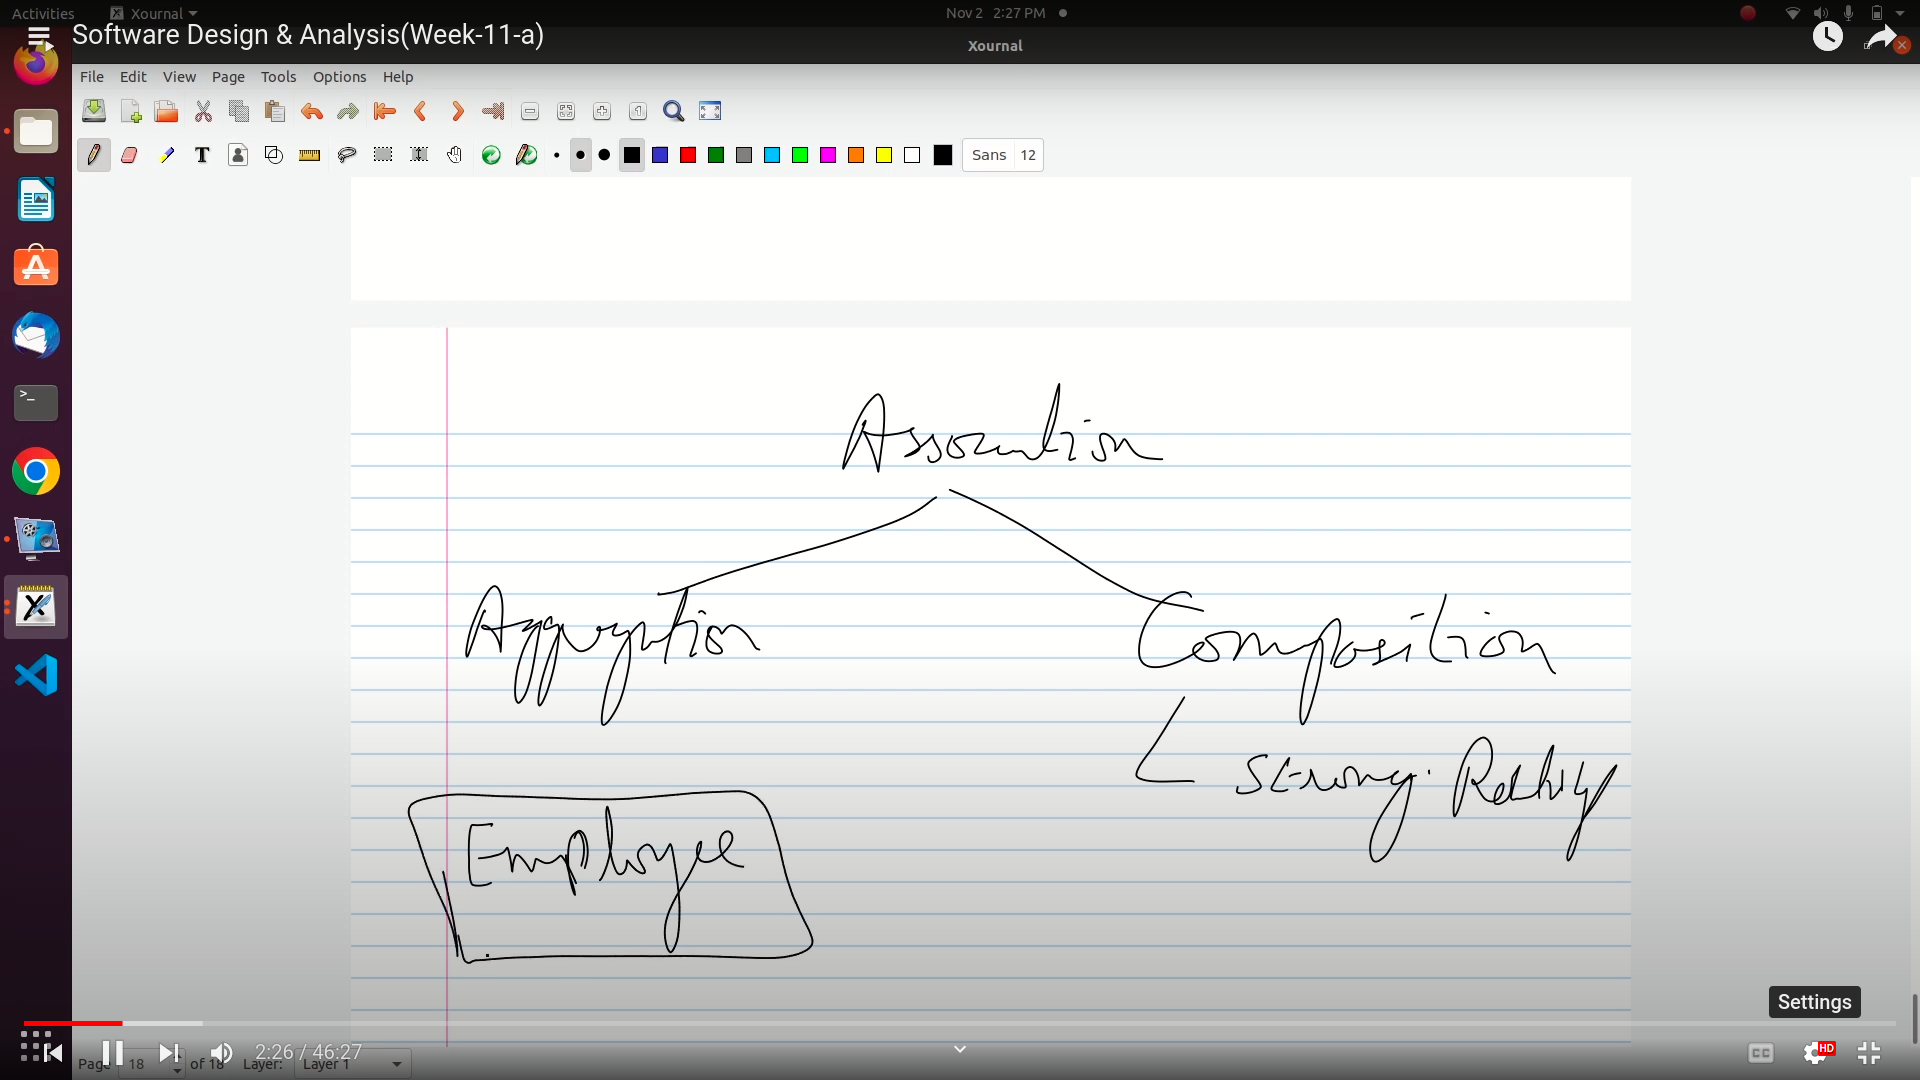 Activities Xournal Nov 2 2:27 PM
Software Design & Analysis(Week-11-a)
Xournal
File Edit View Page Tools Options Help
Sans 12
Association
Aggregation Composition
Strong.
Employee
Settings
2:26 / 46:27
CC HD
Page 18 of 18 Layer: Layer 1